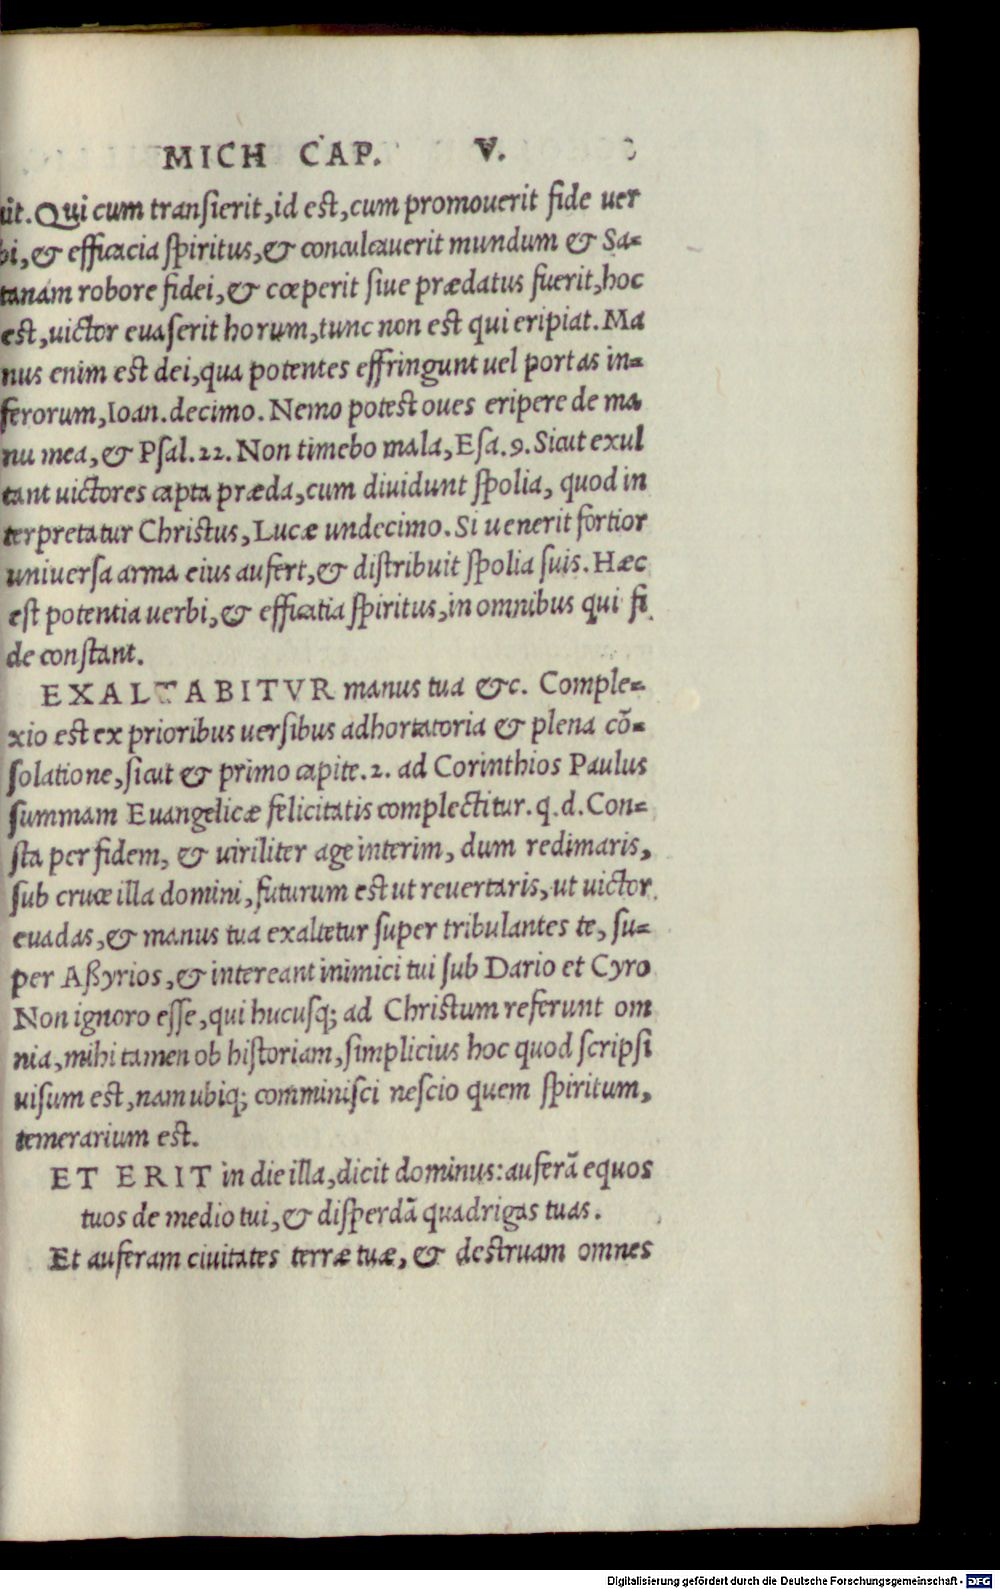 MICH CAP. V.
it. Qui cum transierit, id est, cum promouerit fide uer
bi, & efficacia spiritus, & conculcauerit mundum & Sa=
tanam robore fidei, & cœperit siue prædatus fuerit, hoc
est, uictor euaserit horum, tunc non est qui eripiat. Ma
nus enim est dei, qua potentes effringunt uel portas in=
ferorum, Ioan. decimo. Nemo potest oues eripere de ma
nu mea, & Psal. 22. Non timebo mala, Esa. 9. Sicut exul
tant uictores capta præda, cum diuidunt spolia, quod in
terpretatur Christus, Lucæ undecimo. Si uenerit fortior
uniuersa arma eius aufert, & distribuit spolia suis. Hæc
est potentia uerbi, & efficatia spiritus, in omnibus qui fi
de constant.
EXALTABITVR manus tua &c. Comple=
xio est ex prioribus uersibus adhortatoria & plena cō=
solatione, sicut & primo capite. 2. ad Corinthios Paulus
summam Euangelicæ felicitatis complectitur. q. d. Con=
sta per fidem, & uiriliter age interim, dum redimaris,
sub cruce illa domini, futurum est ut reuertaris, ut uictor
euadas, & manus tua exaltetur super tribulantes te, su=
per Aßyrios, & intereant inimici tui sub Dario et Cyro
Non ignoro esse, qui hucusq; ad Christum referunt om
nia, mihi tamen ob historiam, simplicius hoc quod scripsi
uisum est, nam ubiq; comminisci nescio quem spiritum,
temerarium est.
ET ERIT in die illa, dicit dominus: auferā equos
tuos de medio tui, & disperdā quadrigas tuas.
Et auferam ciuitates terræ tuæ, & destruam omnes
Digitalisierung gefördert durch die Deutsche Forschungsgemeinschaft - DFG